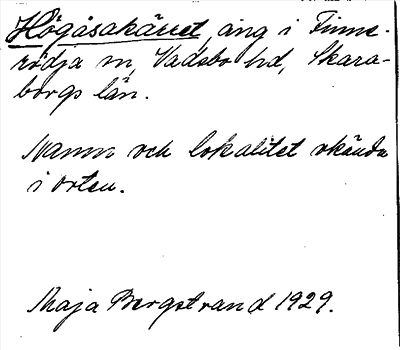 Högåsakärret, äng i Finne-
rödja sn, Vadsbo hd, Skara-
borgs län.
Namn och lokalitet okända
i orten.
Maja Bergstrand 1929.